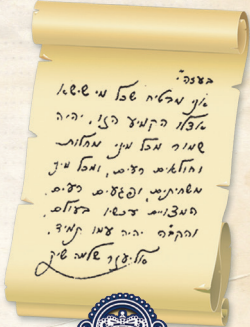 בעזה"י
אני מבטיח שכל מי שישא
אצלו הקמיע הזו, יהיה
שמור מכל מיני מחלות
וחולאים רעים, ומכל מיני
משחיתים, ופגעים רעים,
המצוים עכשיו בעולם,
והקב"ה יהיה עמו תמיד.
אליעזר שלמה שיק